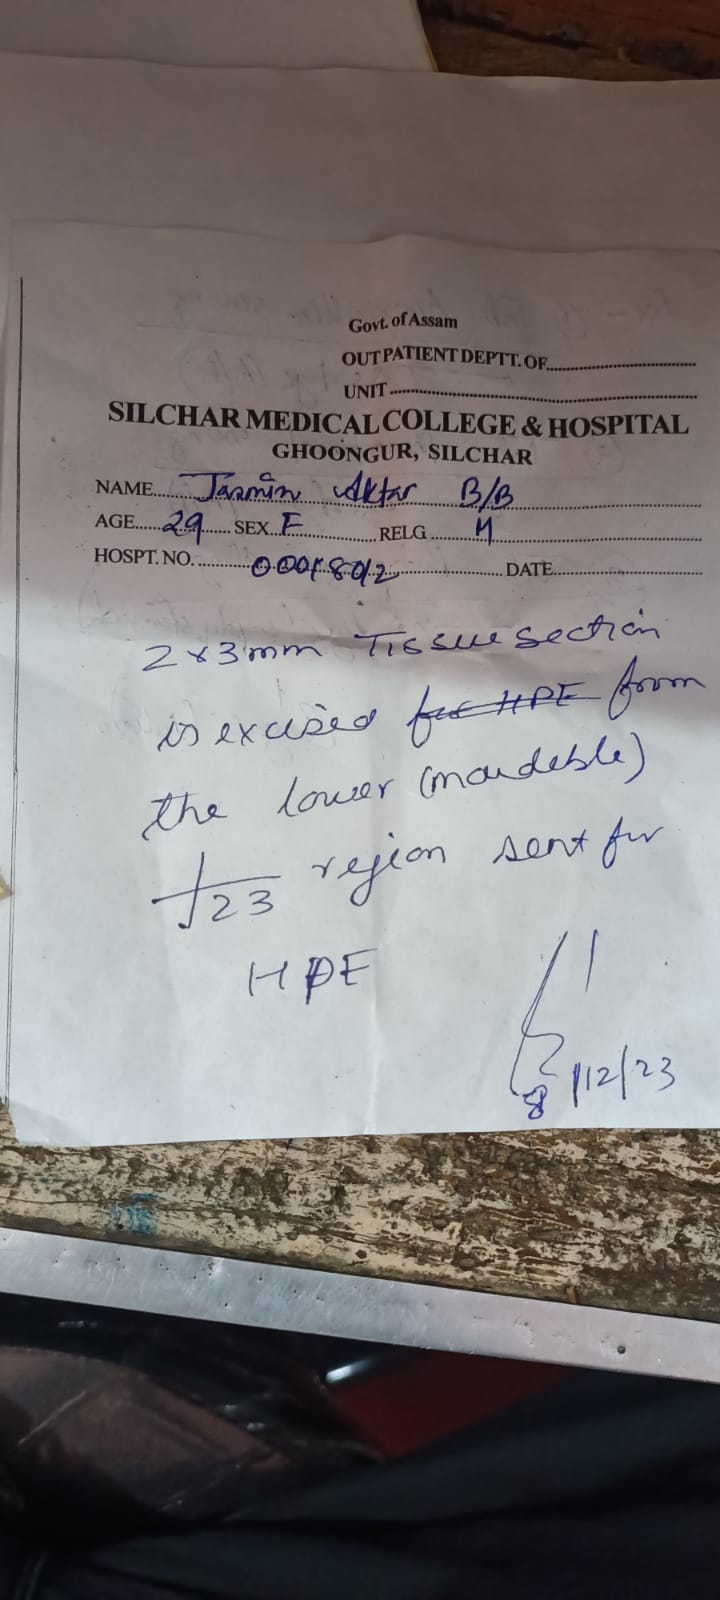 Govt. of Assam
OUT PATIENT DEPTT. OF
UNIT
SILCHAR MEDICAL COLLEGE & HOSPITAL
GHOONGUR, SILCHAR
NAME Jasmin Aktar B/B
AGE 29 SEX F RELG M
HOSPT. NO. DATE
2x3mm Tissue section
is excised for HPE from
the lower (mandeble)
23 region sent for
HPE
8/12/23